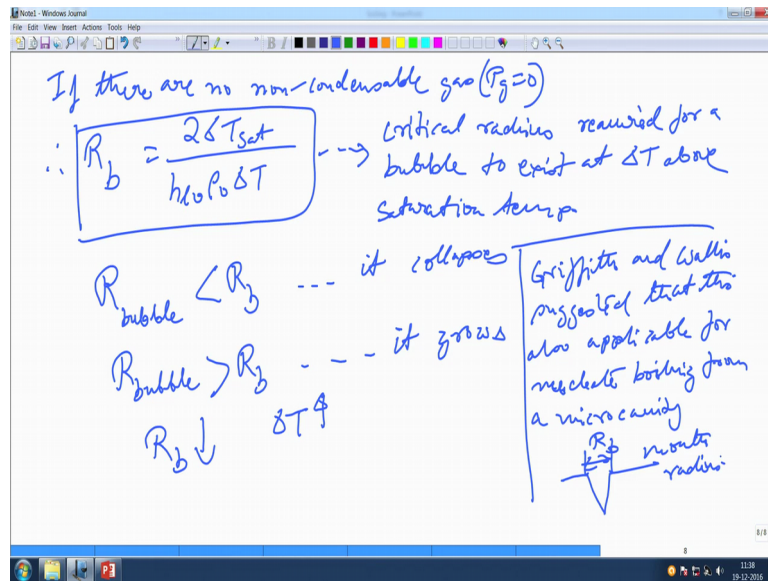 Note1 - Windows Journal
File Edit View Insert Actions Tools Help
If there are no non-condensable gas (Pg=0)
∴ R_b = 2σT_sat / h_lv ρ_v δT ---> critical radius required for a
bubble to exist at δT above
saturation temp.
R_bubble < R_b --- it collapses
R_bubble > R_b --- it grows
R_b ↓ δT ↑
Griffith and Wallis
suggested that this
also applicable for
nucleate boiling from
a microcavity
R_b mouth
radius
8/8
8
11:38
19-12-2016